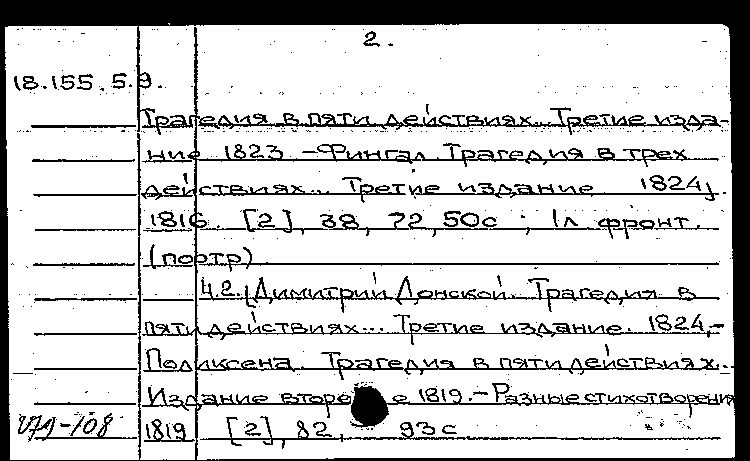 2.
18.155.5.9.
Трагедия в пяти действиях... Третие изда-
ние 1823 -Фингал. Трагедия в трех
действиях... Третие издание 1824].
1816. [2], 38, 72, 50с ; 1л фронт.
(портр)
Ч.2. [Димитрий Донской. Трагедия в
пяти действиях... Третие издание. 1824,-
Поликсена. Трагедия в пяти действиях...
Издание второе 1819.-Разные стихотворения
1819 [2], 82, 93с